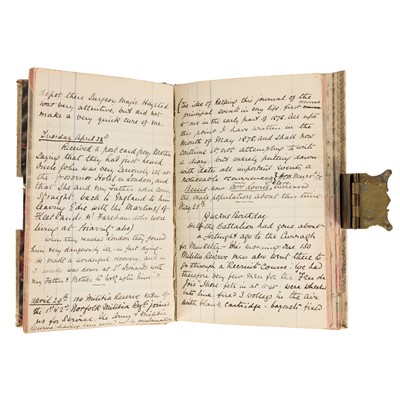 depot there Surgeon Major Hayled
was very attentive, but did not
make a very quick cure of me.
Tuesday April 23rd
Received a post card from Mother
saying that they had just heard
Uncle John was very seriously ill in
the Hotel in London, and
that She and my Father were coming
straight back to England to him
leaving Edie with the Martins (of
Fleet and Mr Farnham who were
living at Dinard also)
when they reached London they found
him very dangerously ill - in fact dying -
he made a wonderful recovery, and in
weeks was down at St Leonards with
my Father & Mother to look after him
April 29th 180 Militia Reserve men of
the 1st & 2nd Norfolk Militia Regt joined
us for Service. The Army & Militia
Reserve having been called out by proclamation
(The idea of keeping this journal of the
principal events in my life first occurred
to me in the early part of 1878. All up to
this point I have written in the
month of May 1878 and shall now
continue it not attempting to write
a diary, but merely putting down
with dates all important events &
noticeable occurrences)
Being increased
the male population about this time
May 25th
Queens Birthday.
Half the Battalion had gone about
a fortnight ago to the Curragh
for Musketry - this morning our 180
Militia Reserve men also went there to
go through a Recruits Course. We had
therefore very few men for the Feu de
Joie Short fell in at 11.45 were wheeled
into line fired 3 volleys in the air
with blank cartridge - bayonets fixed